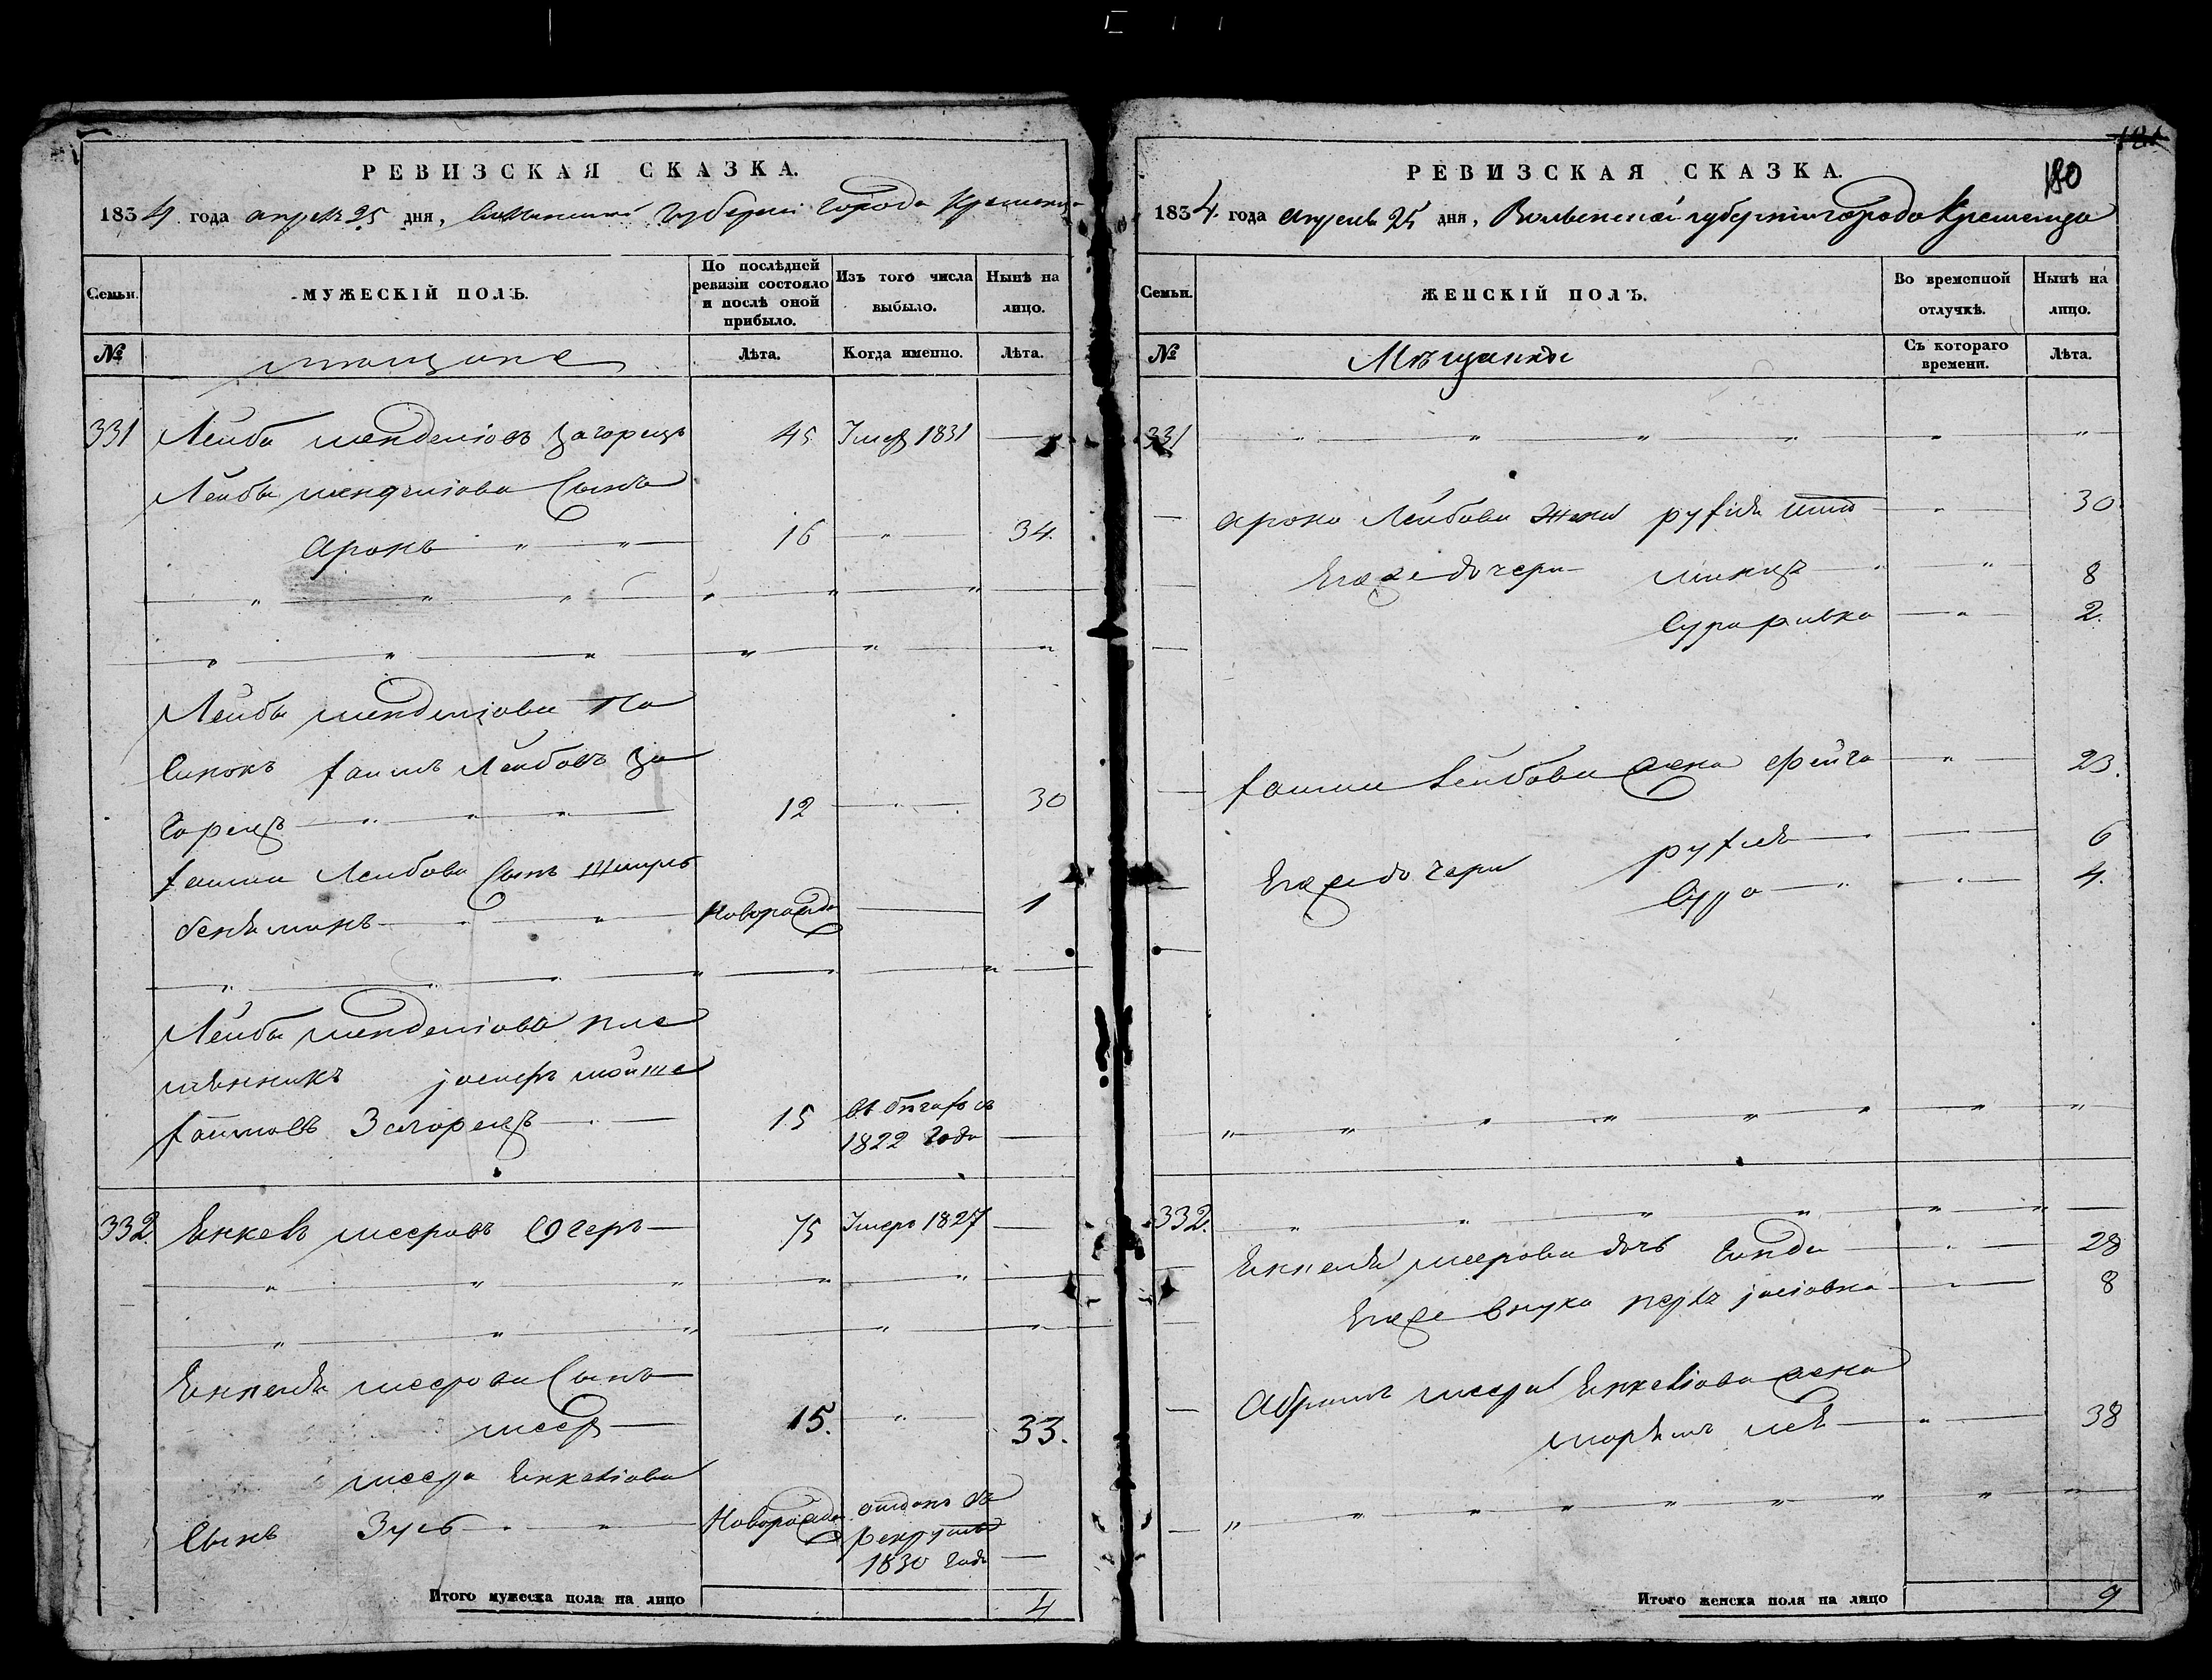 РЕВИЗСКАЯ СКАЗКА.
1834 года апреля 25 дня, Волынской Губернии Города Кременца
Семьи. МУЖЕСКІЙ ПОЛЪ. По послѣдней ревизіи состояло и послѣ оной прибыло. Изъ того числа выбыло. Нынѣ на лицо.
№ мещане Лѣта. Когда именно. Лѣта.
331 Лейба менделiовъ Загорецъ 45 Умер 1831 —
Лейбы менделiова Сынъ
Аронъ 16 34.
Лейбы менделiова па
Синокъ Хаимъ Лейбовъ За
Горецъ 12 30
Хаима Лейбова Сынъ Шмуль
бенямин Новорожде 1
Лейбы менделiова пле
мянникъ Йосифъ мойше
Хаимовъ Загорецъ 15 въ бегахъ съ
1822 года —
332. Янкевъ мееровъ 75 Умеръ 1827 —
Янкеля меерова Сынъ
меер 15. 33.
меера Янкелiова
Сынъ Зусь Новорожде отдан въ
рекруты
1830 года —
Итого мужеска пола на лицо 4
181
180
РЕВИЗСКАЯ СКАЗКА.
1834. года апреля 25 дня, Волынской губернии города Кременца
Семьи. ЖЕНСКІЙ ПОЛЪ. Во временной отлучкѣ. Нынѣ на лицо.
№ Мѣщанки Съ котораго времени. Лѣта.
331
Арона Лейбова Жена рухля 30
Егоже дочери 8
Сура ривка 2.
Хаима Лейбова жена Фейга 23.
Егоже дочери рухля 6
Сура 4.
332.
Янкеля меерова дочь 28
Егоже внука перля 8
меера Янкелiова жена
марьям лея 38
Итого женска пола на лицо 9